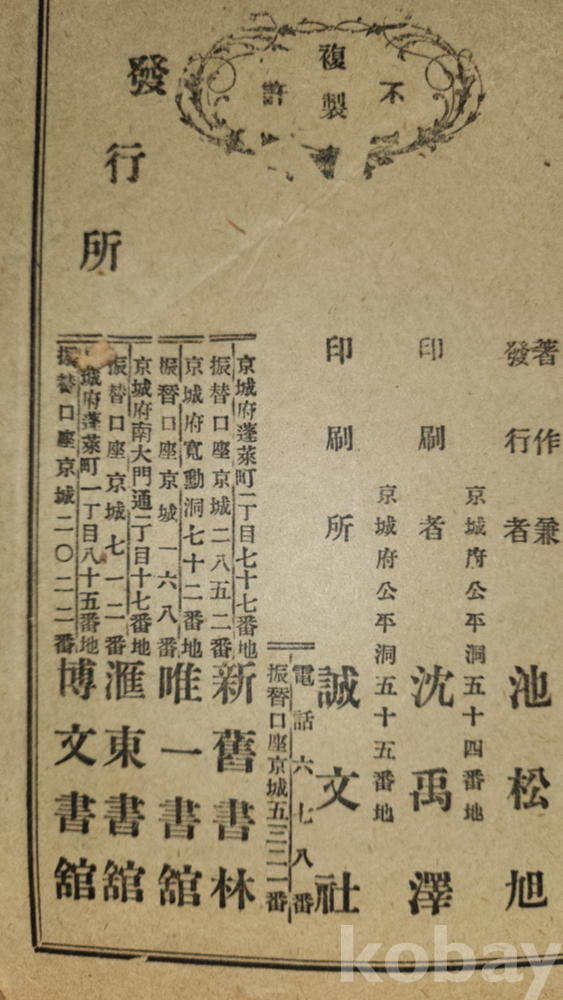 不許複製
著作兼
發行者 池松旭
京城府公平洞五十四番地
印刷者 沈禹澤
京城府公平洞五十五番地
印刷所 誠文社
電話六七八番
振替口座京城五三二一番
發行所
京城府蓬萊町一丁目七十七番地
振替口座京城二八五二番
新舊書林
京城府寬勳洞七十二番地
振替口座京城一六八番
唯一書舘
京城府南大門通一丁目十七番地
振替口座京城七一二番
滙東書舘
城府蓬萊町一丁目八十五番地
振替口座京城二〇二二番
博文書舘
kobay